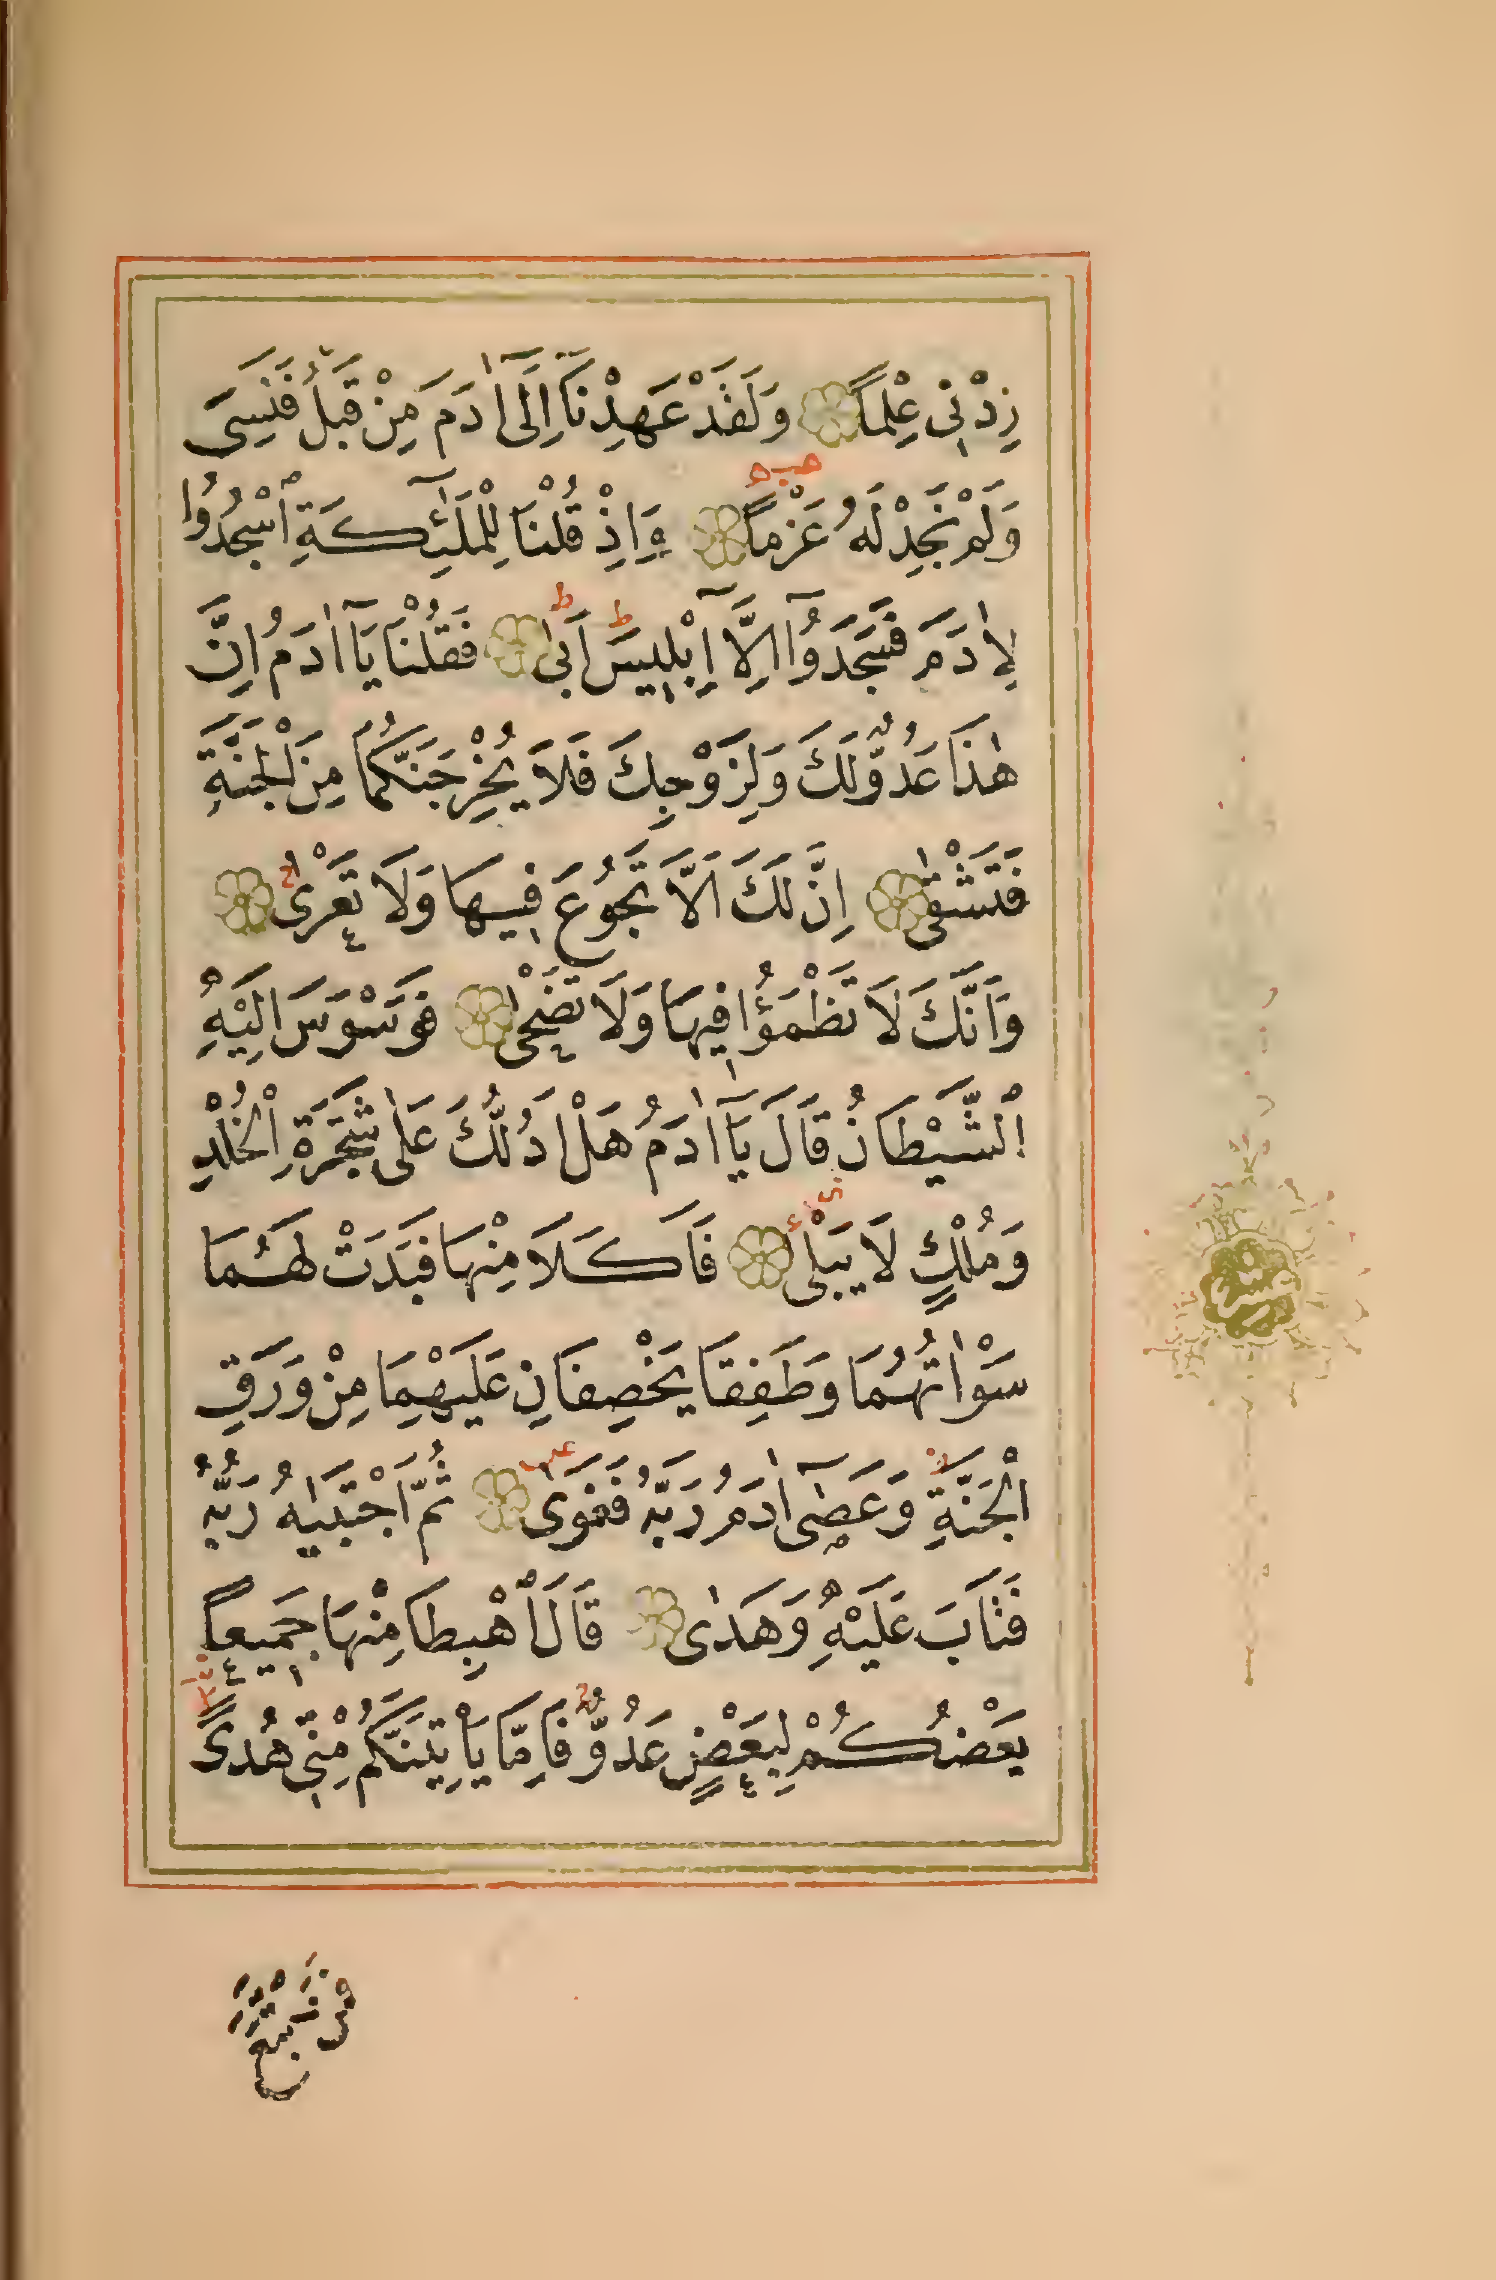 زِدْنٖي عِلْماً وَلَقَدْ عَهِدْنَٓا اِلٰٓى اٰدَمَ مِنْ قَبْلُ فَنَسِىَ
وَلَمْ نَجِدْ لَهُ عَزْماً وَاِذْ قُلْنَا لِلْمَلٰٓئِكَةِ اسْجُدُوا
لِاٰدَمَ فَسَجَدُٓوا اِلَّٓا اِبْلٖيسَ اَبٰى فَقُلْنَا يَٓا اٰدَمُ اِنَّ
هٰذَا عَدُوٌّ لَكَ وَلِزَوْجِكَ فَلَا يُخْرِجَنَّكُمَا مِنَ الْجَنَّةِ
فَتَشْقٰى اِنَّ لَكَ اَلَّا تَجُوعَ فٖيهَا وَلَا تَعْرٰى
وَاَنَّكَ لَا تَظْمَؤُا فٖيهَا وَلَا تَضْحٰى فَوَسْوَسَ اِلَيْهِ
الشَّيْطَانُ قَالَ يَٓا اٰدَمُ هَلْ اَدُلُّكَ عَلٰى شَجَرَةِ الْخُلْدِ
وَمُلْكٍ لَا يَبْلٰى فَاَكَلَا مِنْهَا فَبَدَتْ لَهُمَا
سَوْاٰتُهُمَا وَطَفِقَا يَخْصِفَانِ عَلَيْهِمَا مِنْ وَرَقِ
الْجَنَّةِ وَعَصٰٓى اٰدَمُ رَبَّهُ فَغَوٰى ثُمَّ اجْتَبٰيهُ رَبُّهُ
فَتَابَ عَلَيْهِ وَهَدٰى قَالَ اهْبِطَا مِنْهَا جَمٖيعاً
بَعْضُكُمْ لِبَعْضٍ عَدُوٌّ فَاِمَّا يَأْتِيَنَّكُمْ مِنّٖى هُدًى
فَمَنِ اتَّبَعَ